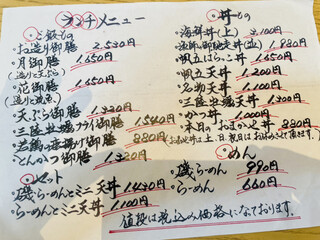 ランチメニュー
・ご飯もの
・お造り御膳 2,530円
・月御膳 1,650円
(造りと天ぷら)
・花御膳 1,650円
(造りと焼魚)
・天ぷら御膳 1,320円
・三陸牡蠣フライ御膳 1,540円
・若鶏の唐揚げ御膳 880円
・とんかつ御膳 1,320円
・セット
・磯らーめんとミニ天丼 1,430円
・らーめんとミニ天丼 1,100円
・丼もの
・海鮮丼(上) 2,100円
1,880円
・帆立はらこ丼 1,650円
・帆立天丼 1,200円
・名物天丼 1,100円
・三陸牡蠣天丼 1,200円
・かつ丼 1,000円
・本日のおまかせ丼 880円
(土、日、祝日はお休みとさせて頂きます)
・めん
・磯らーめん 990円
・らーめん 660円
値段は税込み価格になっております。